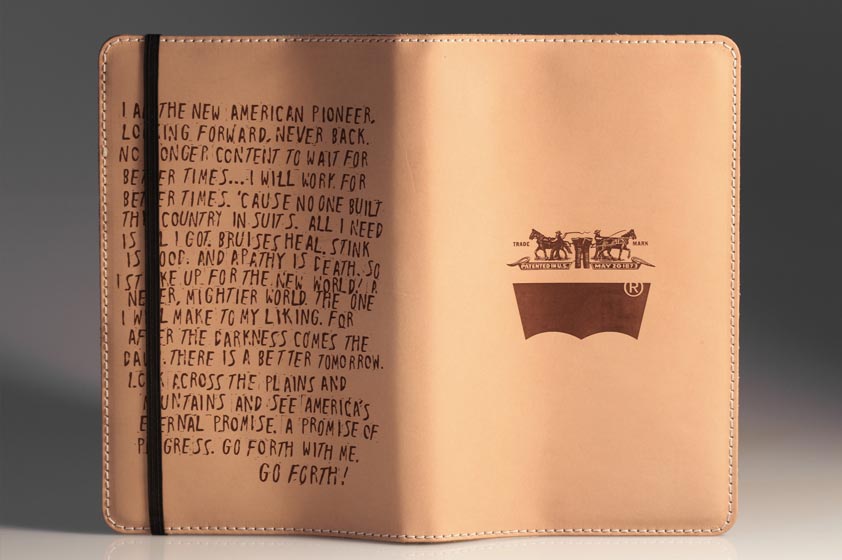 I AM THE NEW AMERICAN PIONEER,
LOOKING FORWARD, NEVER BACK.
NO LONGER CONTENT TO WAIT FOR
BETTER TIMES...I WILL WORK FOR
BETTER TIMES. 'CAUSE NO ONE BUILT
THIS COUNTRY IN SUITS. ALL I NEED
IS ALL I GOT. BRUISES HEAL. STINK
IS GOOD. AND APATHY IS DEATH. SO
I STRIKE UP FOR THE NEW WORLD! A
NEWER, MIGHTIER WORLD. THE ONE
I WILL MAKE TO MY LIKING. FOR
AFTER THE DARKNESS COMES THE
DAWN. THERE IS A BETTER TOMORROW.
LOOK ACROSS THE PLAINS AND
MOUNTAINS AND SEE AMERICA'S
ETERNAL PROMISE. A PROMISE OF
PROGRESS. GO FORTH WITH ME.
GO FORTH!
TRADE MARK
PATENTED IN U.S. MAY 20 1873
®